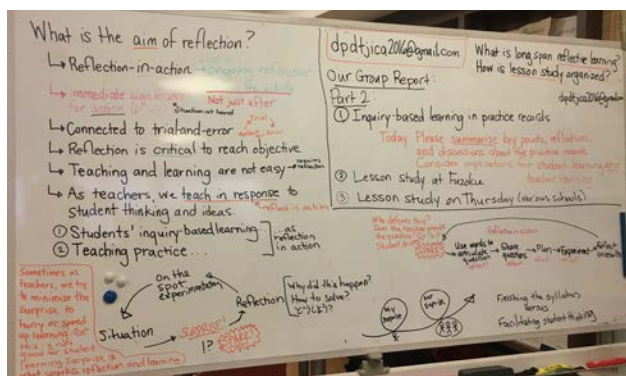 What is the aim of reflection?
↳ Reflection-in-action
ongoing reflection
↳ immediate
for action
Not just after
Situation at hand
↳ Connected to trial and-error
↳ Reflection is critical to reach objective
↳ Teaching and learning are not easy → requires reflection
↳ As teachers, we teach in response to
student thinking and ideas.
reflect in action
① Students' inquiry-based learning
② Teaching practice...
...as
reflection
in action
Sometimes as
teachers, we try
to minimize the
surprise, to
hurry or speed
up learning. But
this is not
good for student
learning. Surprise is
what sparks reflection and learning
on the
spot
experimentation
Situation
SURPRISE!
!?
SPARK!
Reflection
Why did this happen?
How to solve?
どうしよう?
dpdtjica2016@gmail.com
Our Group Report:
Part 2:
① Inquiry-based learning in practice records
Today: Please summarize key points, reflections,
and discussions about the practice records
Consider implications for student learning and
teacher learning
② Lesson study at Fuzoku
③ Lesson study on Thursday (various schools)
What is long span reflective learning?
How is lesson study organized?
dpdtjica2016@gmail.com
Who defines this?
Does the teacher provide
the question?
Student
Reflection in action
Use words to
articulate
question
→ Share
questions
→ Plan
→ Experiment
→ Reflect
on results
My
surprise
our
surprise
Finishing the syllabus
versus
Facilitating student thinking